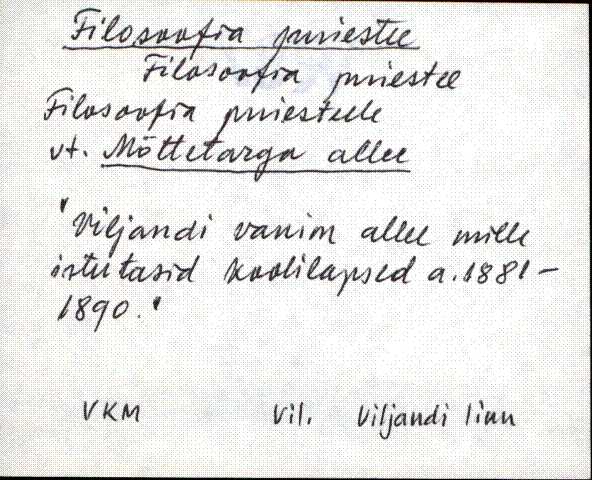 Filosoofia puiestee
Filosoofia puiestee
Filosoofia puiesteele
vt. Mõttetarga allee
"Viljandi vanim allee mille
istutasid koolilapsed a. 1881-
1890."
VKM Vil. Viljandi linn